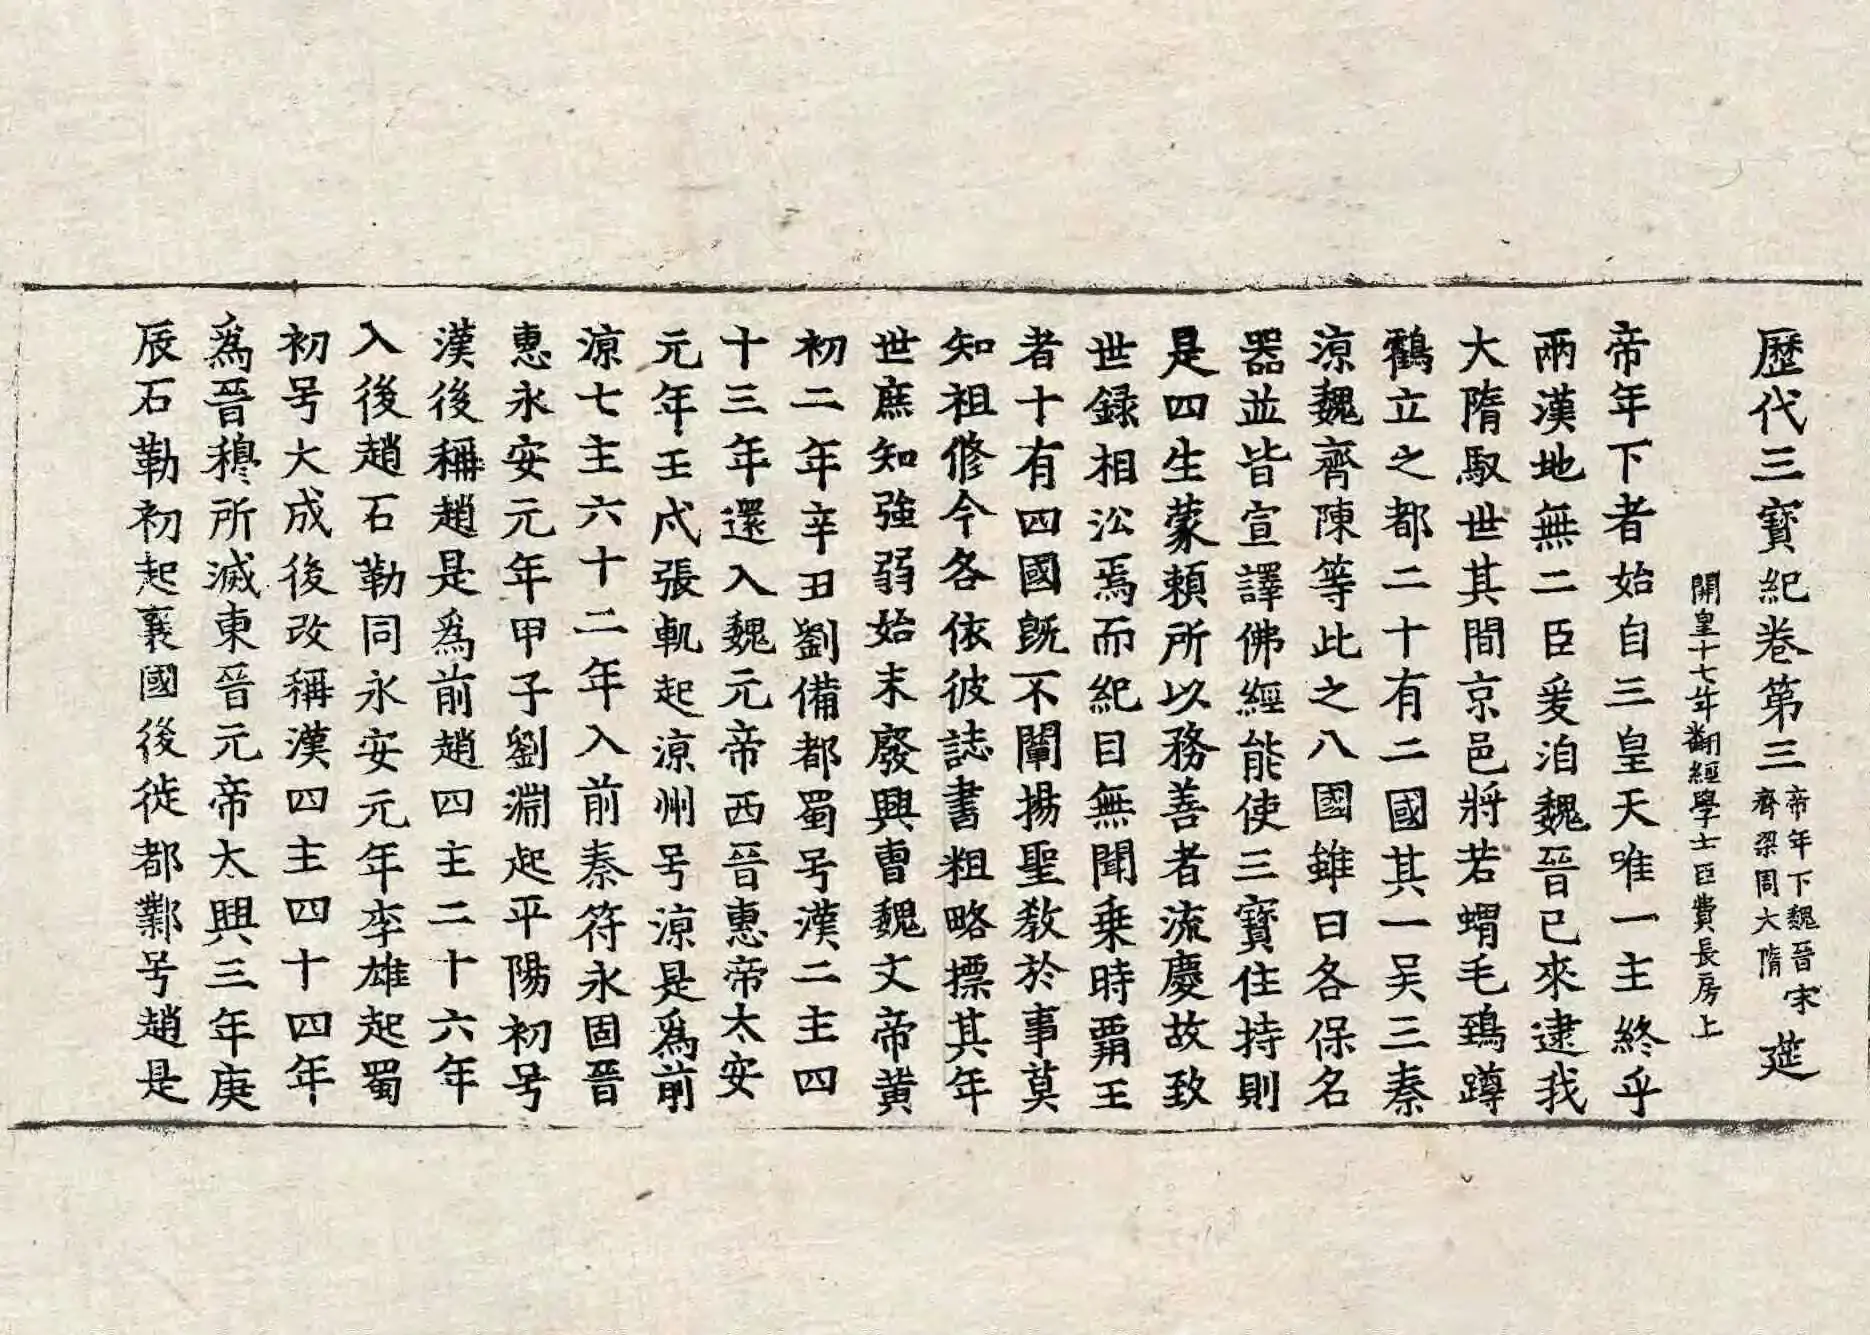 歷代三寶紀卷第三 帝年下魏晉宋齊梁周大隋 筵
開皇十七年翻經學士臣費長房上
帝年下者始自三皇天唯一主終乎
兩漢地無二臣爰洎魏晉已來逮我
大隋馭世其間京邑將若蝟毛鵄蹲
鸛立之都二十有二國其一吴三秦
涼魏齊陳等此之八國雖曰各保名
器並皆宣譯佛經能使三寶住持則
是四生蒙賴所以務善者流慶故致
世録相㳂焉而紀目無聞乗時覇王
者十有四國旣不闡揚聖教於事莫
知祖俢今各依彼誌書粗略摽其年
世庶知強弱始末廢興曹魏文帝黄
初二年辛丑劉備都蜀号漢二主四
十三年還入魏元帝西晉惠帝太安
元年壬戍張軌起涼州号涼是爲前
涼七主六十二年入前秦符永固晉
惠永安元年甲子劉淵起平陽初号
漢後稱趙是爲前趙四主二十六年
入後趙石勒同永安元年李雄起蜀
初号大成後改稱漢四主四十四年
爲晉穆所滅東晉元帝太興三年庚
辰石勒初起襄國後徙都鄴号趙是